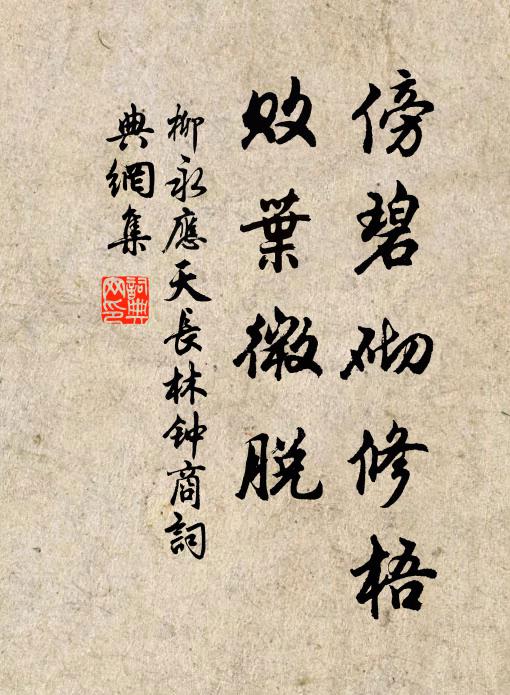 傍碧砌修梧
敗葉微脫
柳永應天長林钟商詞
典網集
詞典
网印